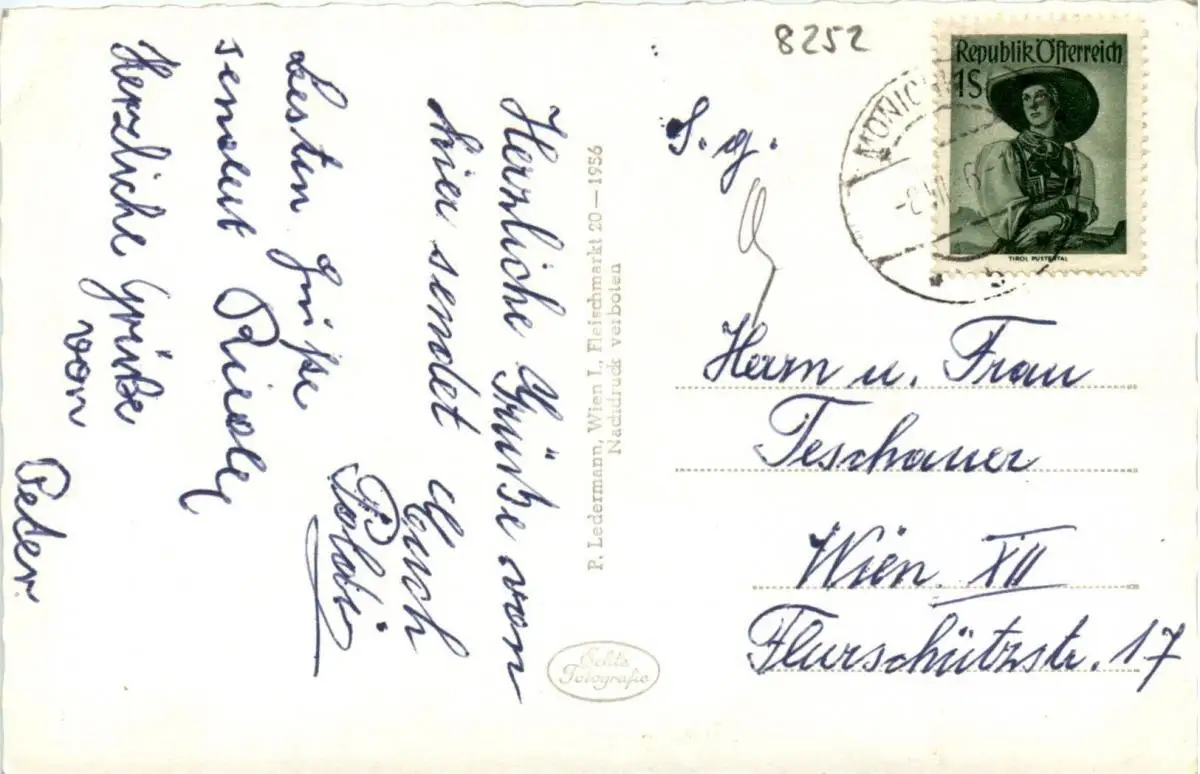 8252
Republik Österreich
1S
TIROL PUSTERTAL
MONICH
S. g.
Herrn u. Frau
Teschauer
Wien XII
Flurschützstr. 17
P. Ledermann, Wien I., Fleischmarkt 20—1956
Nachdruck verboten
Echte
Fotografie
Herzliche Grüße von
hier sendet Euch
Besten Grüße
sendet
Herzliche Grüße
von
Peter